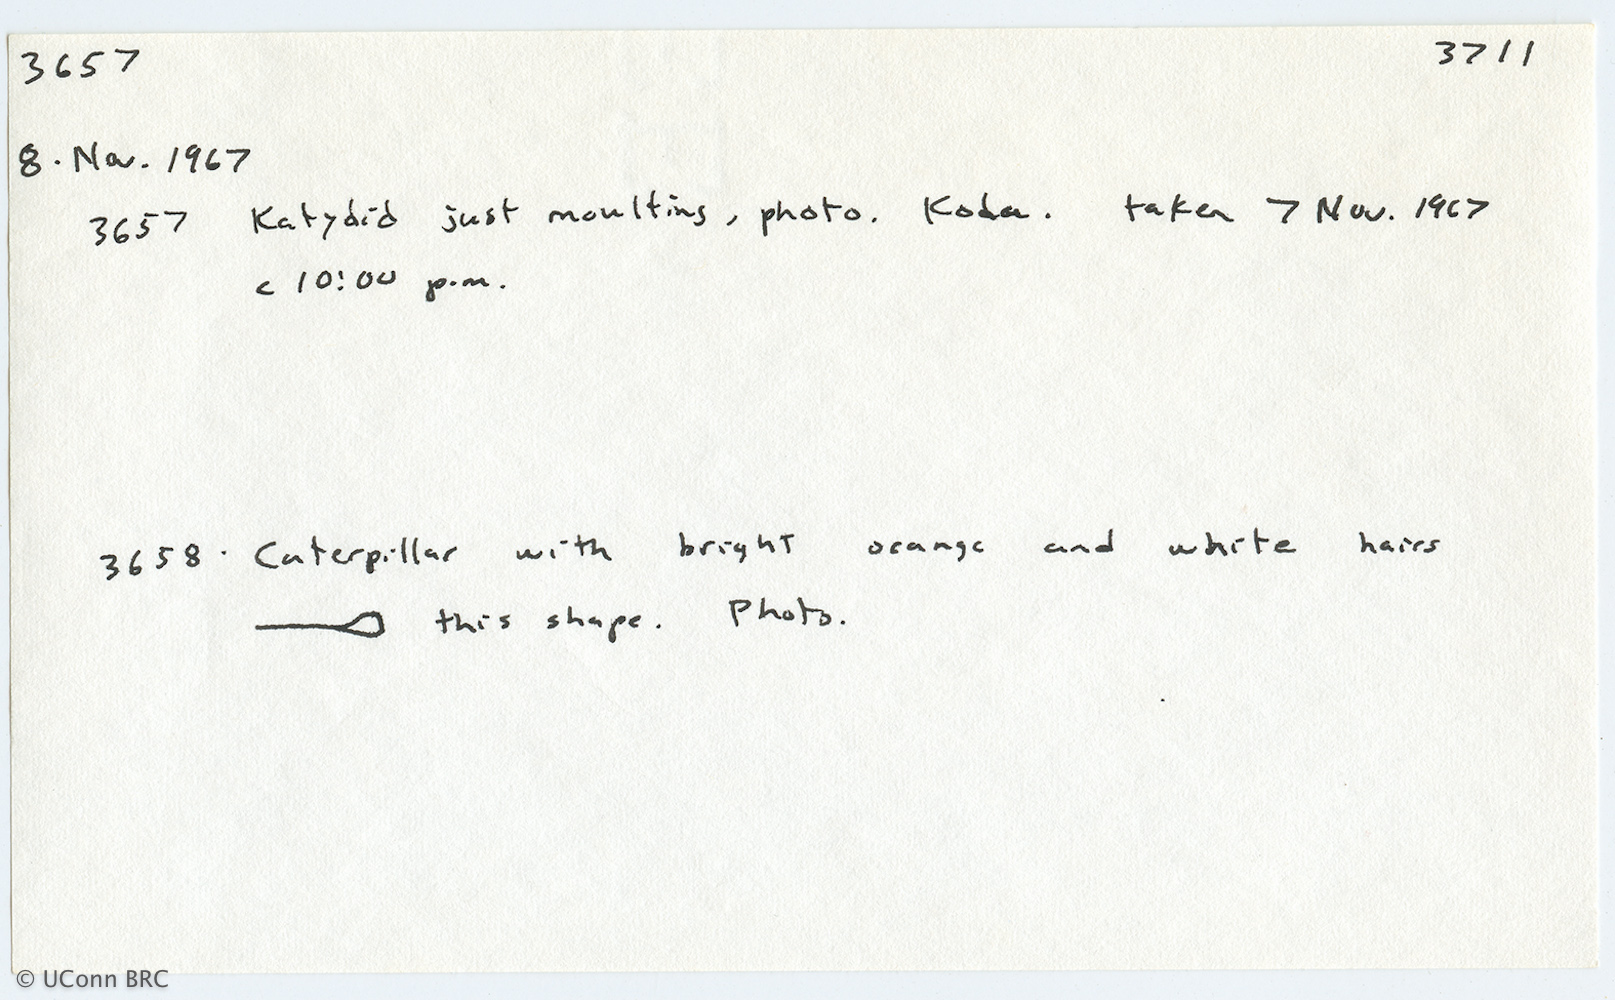 3657 3711
8. Nov. 1967
3657 Katydid just moulting, photo. Koda. taken 7 Nov. 1967
c 10:00 p.m.
3658. Caterpillar with bright orange and white hairs
this shape. Photo.
© UConn BRC